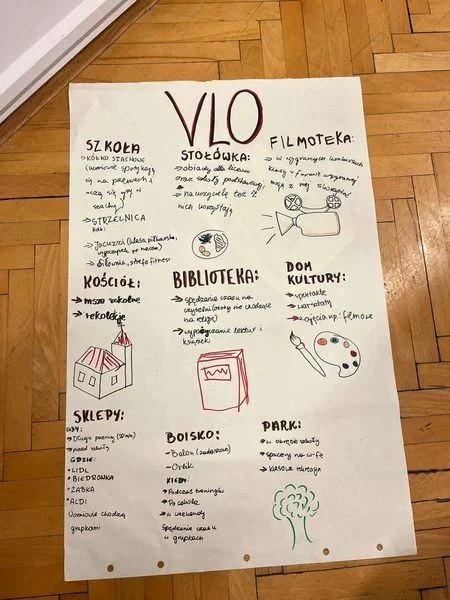 VLO
SZKOŁA
→KÓŁKO SZACHOWE
(uczniowie spotykają
się na przerwach i
uczą się gry w
szachy)
→STRZELNICA
→Jacuzzi (klasa piłkarska,
→siłownia, strefa fitness
STOŁÓWKA:
→obiady dla liceum
oraz szkoły podstawowej,
→nauczyciele też z
nich korzystają
FILMOTEKA:
→w wygranych konkursach
klasy w formie wygranej
mogą z niej skorzystać
KOŚCIÓŁ:
→msze szkolne
→rekolekcje
BIBLIOTEKA:
→spędzanie czasu na
czytelni (osoby nie chodzące
na religię)
→wypożyczanie lektur i
książek
DOM
KULTURY:
→spektakle
→warsztaty
→zajęcia np: filmowe
SKLEPY:
→Długie przerwy
→przed szkołą
GDZIE:
•LIDL
•BIEDRONKA
•ŻABKA
•ALDI
Uczniowie chodzą
grupkami
BOISKO:
-Balon
-Orlik
KIEDY:
→Podczas treningów
→Po szkole
→w weekendy
Spędzanie czasu
w grupkach
PARK:
→w obrębie szkoły
→spacery na w-fie
→klasowa rekreacja